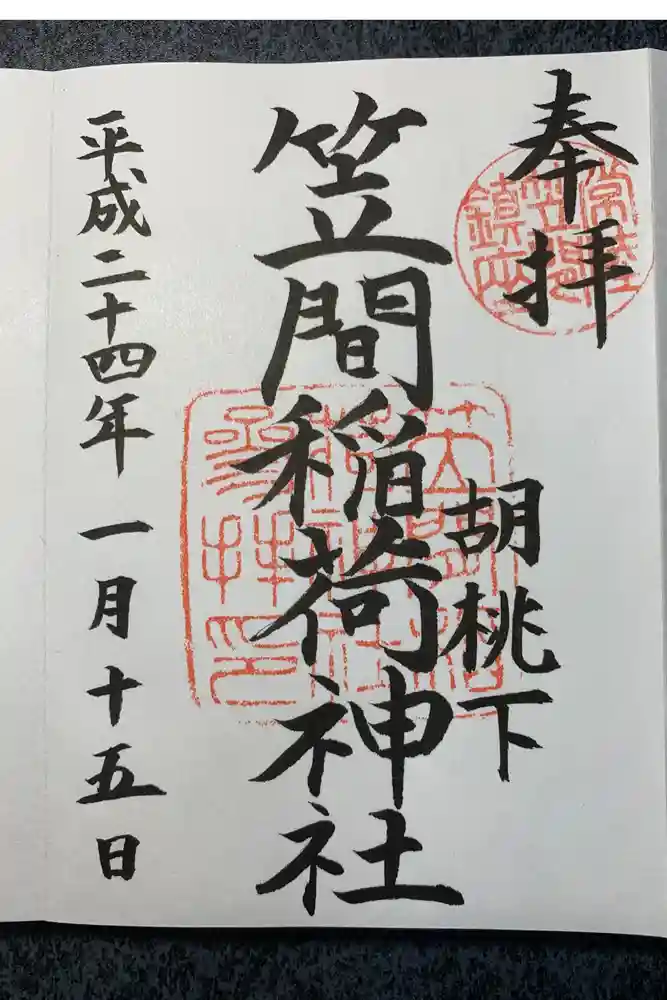 奉拝
胡桃下
笠間稲荷神社
平成二十四年一月十五日